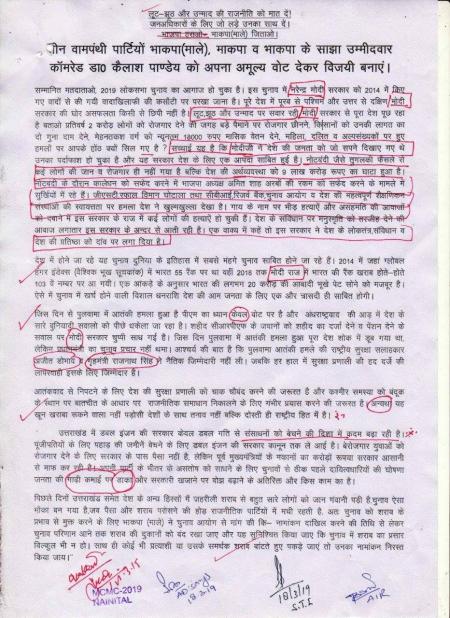 लूट-झूठ और उन्माद की राजनीति को मात दें!
जनअधिकारों के लिए जो लड़े उनका साथ दें।
भाकपा (माले) जिताओ।
तीन वामपंथी पार्टियों भाकपा(माले), माकपा व भाकपा के साझा उम्मीदवार
कॉमरेड डा0 कैलाश पाण्डेय को अपना अमूल्य वोट देकर विजयी बनाएं।
सम्मानित मतदाताओ, 2019 लोकसभा चुनाव का आगाज हो चुका है। इस चुनाव में नरेन्द्र मोदी सरकार को 2014 में किए
गए वादों से की गयी वादाखिलाफी की कसौटी पर परखा जाना है। पूरे देश में पूरब से पश्चिम और उत्तर से दक्षिण मोदी
सरकार की घोर असफलता किसी से छिपी नहीं है। लूट,झूठ और उन्माद पर सवार रही मोदी सरकार से पूरा देश पूछ रहा
है बताओ प्रतिवर्ष 2 करोड़ लोगों को रोजगार देने की जगह बड़े पैमाने पर रोजगार छीनने, किसानों को उनकी लागत का
दो गुना दाम देने, मेहनतकश वर्ग को न्यूनतम 18000 रूपए मासिक वेतन देने, महिला, दलित व अल्पसंख्यकों पर हुए
हमलों पर आपके होंठ क्यों सिल गए है ? सच्चाई यह है कि मोदीजी ने देश की जनता को जो सपने दिखाए गए थे
उनका पर्दाफाश हो चुका है और यह सरकार देश के लिए एक आपदा साबित हुई है। नोटबंदी जैसे तुगलकी फैंसले से
कई लोगों की जान व रोजगार ही नहीं गया है बल्कि देश की अर्थव्यवस्था को 9 लाख करोड़ रूपए का घाटा हुआ है।
नोटबंदी के दौरान कालेधन को सफेद करने में भाजपा अध्यक्ष अमित शाह अरबों की रकम को सफेद करने के मामले में
सुर्खियों में रहे हैं। जीएसटी,राफाल विमान घोटाला तथा सीबीआई,रिजर्व बैंक,चुनाव आयोग व देश की महत्वपूर्ण शैक्षणिक
संस्थाओं की स्वायत्तता पर हमला देश ने खुल्लमखुल्ला देखा है। गाय के नाम पर भीड़ हत्याएं और असहमति की आवाजों
को दबाने में इस सरकार के राज में कई लोगों की हत्याएं हो चुकी हैं। देश के संविधान पर मनुस्मृति को तरजीह देने की
आवाज लगातार इस सरकार के अन्दर से आती रही है। एक वाक्य में कहें तो इस सरकार ने देश के लोकतंत्र,संविधान व
देश की प्रतिष्ठा को दांव पर लगा दिया है।
देश में होने जा रहे यह चुनाव दुनिया के इतिहास में सबसे महंगे चुनाव साबित होने जा रहे हैं। 2014 में जहां ग्लोबल
हंगर इंडेक्स (वैश्विक भूख सूचकांक) में भारत 55 रैंक पर था वहीं 2018 तक मोदी राज में भारत की रैंक खराब होते-होते
103 वें नम्बर पर आ गयी। एक आंकड़े के अनुसार भारत की लगभग 20 करोड़ की आबादी भूखे पेट सोने को मजबूर है।
ऐसे में चुनाव में खर्च होने वाली विशाल धनराशि देश की आम जनता के लिए एक और त्रासदी ही साबित होगी।
जिस दिन से पुलवामा में आतंकी हमला हुआ है पीएम का ध्यान केवल वोट पर है और अंधराष्ट्रवाद की आड़ में देश के
सारे बुनियादी सवालों को पीछे धकेला जा रहा है। शहीद सीआरपीएफ के जवानों को शहीद का दर्जा देने व पेंशन देने के
सवाल पर मोदी सरकार चुप्पी साध गई है। जिस दिन पुलवामा में आतंकी हमला हुआ पूरा देश शोक में डूब गया था,
लेकिन प्रधानमंत्री का चुनाव प्रचार नहीं थमा। आश्चर्य की बात है कि पुलवामा आतंकी हमले की राष्ट्रीय सुरक्षा सलाहकार
अजीत डोभाल व गृहमंत्री राजनाथ सिंह ने नैतिक जिम्मेदारी नहीं ली। जबकि हर हाल में सुरक्षा प्रणाली की हद दर्जे की
लापरवाही इसके लिए जिम्मेदार है।
आतंकवाद से निपटने के लिए देश की सुरक्षा प्रणाली को चाक चौबंद करने की जरूरत है और कश्मीर समस्या को बंदूक
के स्थान पर बातचीत के आधार पर राजनीतिक समाधान निकालने के लिए गंभीर प्रयास करने की जरूरत है। अन्यथा यह
खून खराबा रूकने वाला नहीं पड़ोसी देशों के साथ तनाव नहीं बल्कि दोस्ती ही राष्ट्रीय हित में है।
उत्तराखंड में डबल इंजन की सरकार केवल डबल गति से संसाधनों को बेचने की दिशा में कदम बढ़ा रही है।
पूंजीपतियों के लिए पहाड़ की जमीनें बेचने के लिए डबल इंजन की सरकार कानून तक ले आई है। बेरोजगार युवाओं को
रोजगार देने के लिए सरकार के पास पैसा नहीं है, लेकिन पूर्व मुख्यमंत्रियों के मकानों का करोड़ों रूपया सरकार आसानी
से माफ कर रही है। अपनी पार्टी के भीतर के असंतोष को साधने के लिए चुनावों से ठीक पहले दायित्वधारियों की घोषणा
जनता की गाढ़ी कमाई पर डाका और सरकारी खजाने पर बोझ बढ़ाने के अतिरिक्त और किस काम का है।
पिछले दिनों उत्तराखंड समेत देश के अन्य हिस्सों में जहरीली शराब से बहुत सारे लोगों को जान गंवानी पड़ी है,चुनाव ऐसा
मौका बन गया है,जब पैसा और शराब परोसने की होड़ राजनीतिक पार्टियों में मची रहती है. अतः चुनाव को शराब के
प्रभाव से मुक्त करने के लिए भाकपा (माले) ने चुनाव आयोग से मांग की कि— नामांकन दाखिल करने की तिथि से लेकर
चुनाव परिणाम आने तक शराब की दुकानों को बंद रखा जाए और यह सुनिश्चित किया जाए कि चुनाव में शराब का प्रसार
बिल्कुल भी न हो। साथ ही कोई भी प्रत्याशी या उसके समर्थक शराब बांटते हुए पकड़े जाएं तो उनका नामांकन निरस्त
किया जाय।
MCMC-2019
NAINITAL
18-3-19
18/3/19
S.T.I
AIR